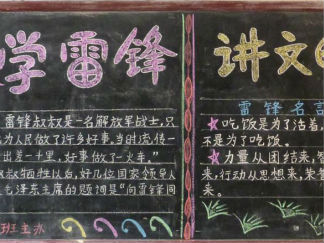 学雷锋
雷锋叔叔是一名解放军战士，只
为人民做了许多好事，当时流传一
出差一千里，好事做了一火车。"
叔牺牲以后，好几位国家领导人
毛泽东主席的题词是"向雷锋同
班主办
讲文
雷锋名言
★吃饭是为了活着，
不是为了吃饭。
★力量从团结来，智
来，行动从思想来，荣誉
来。